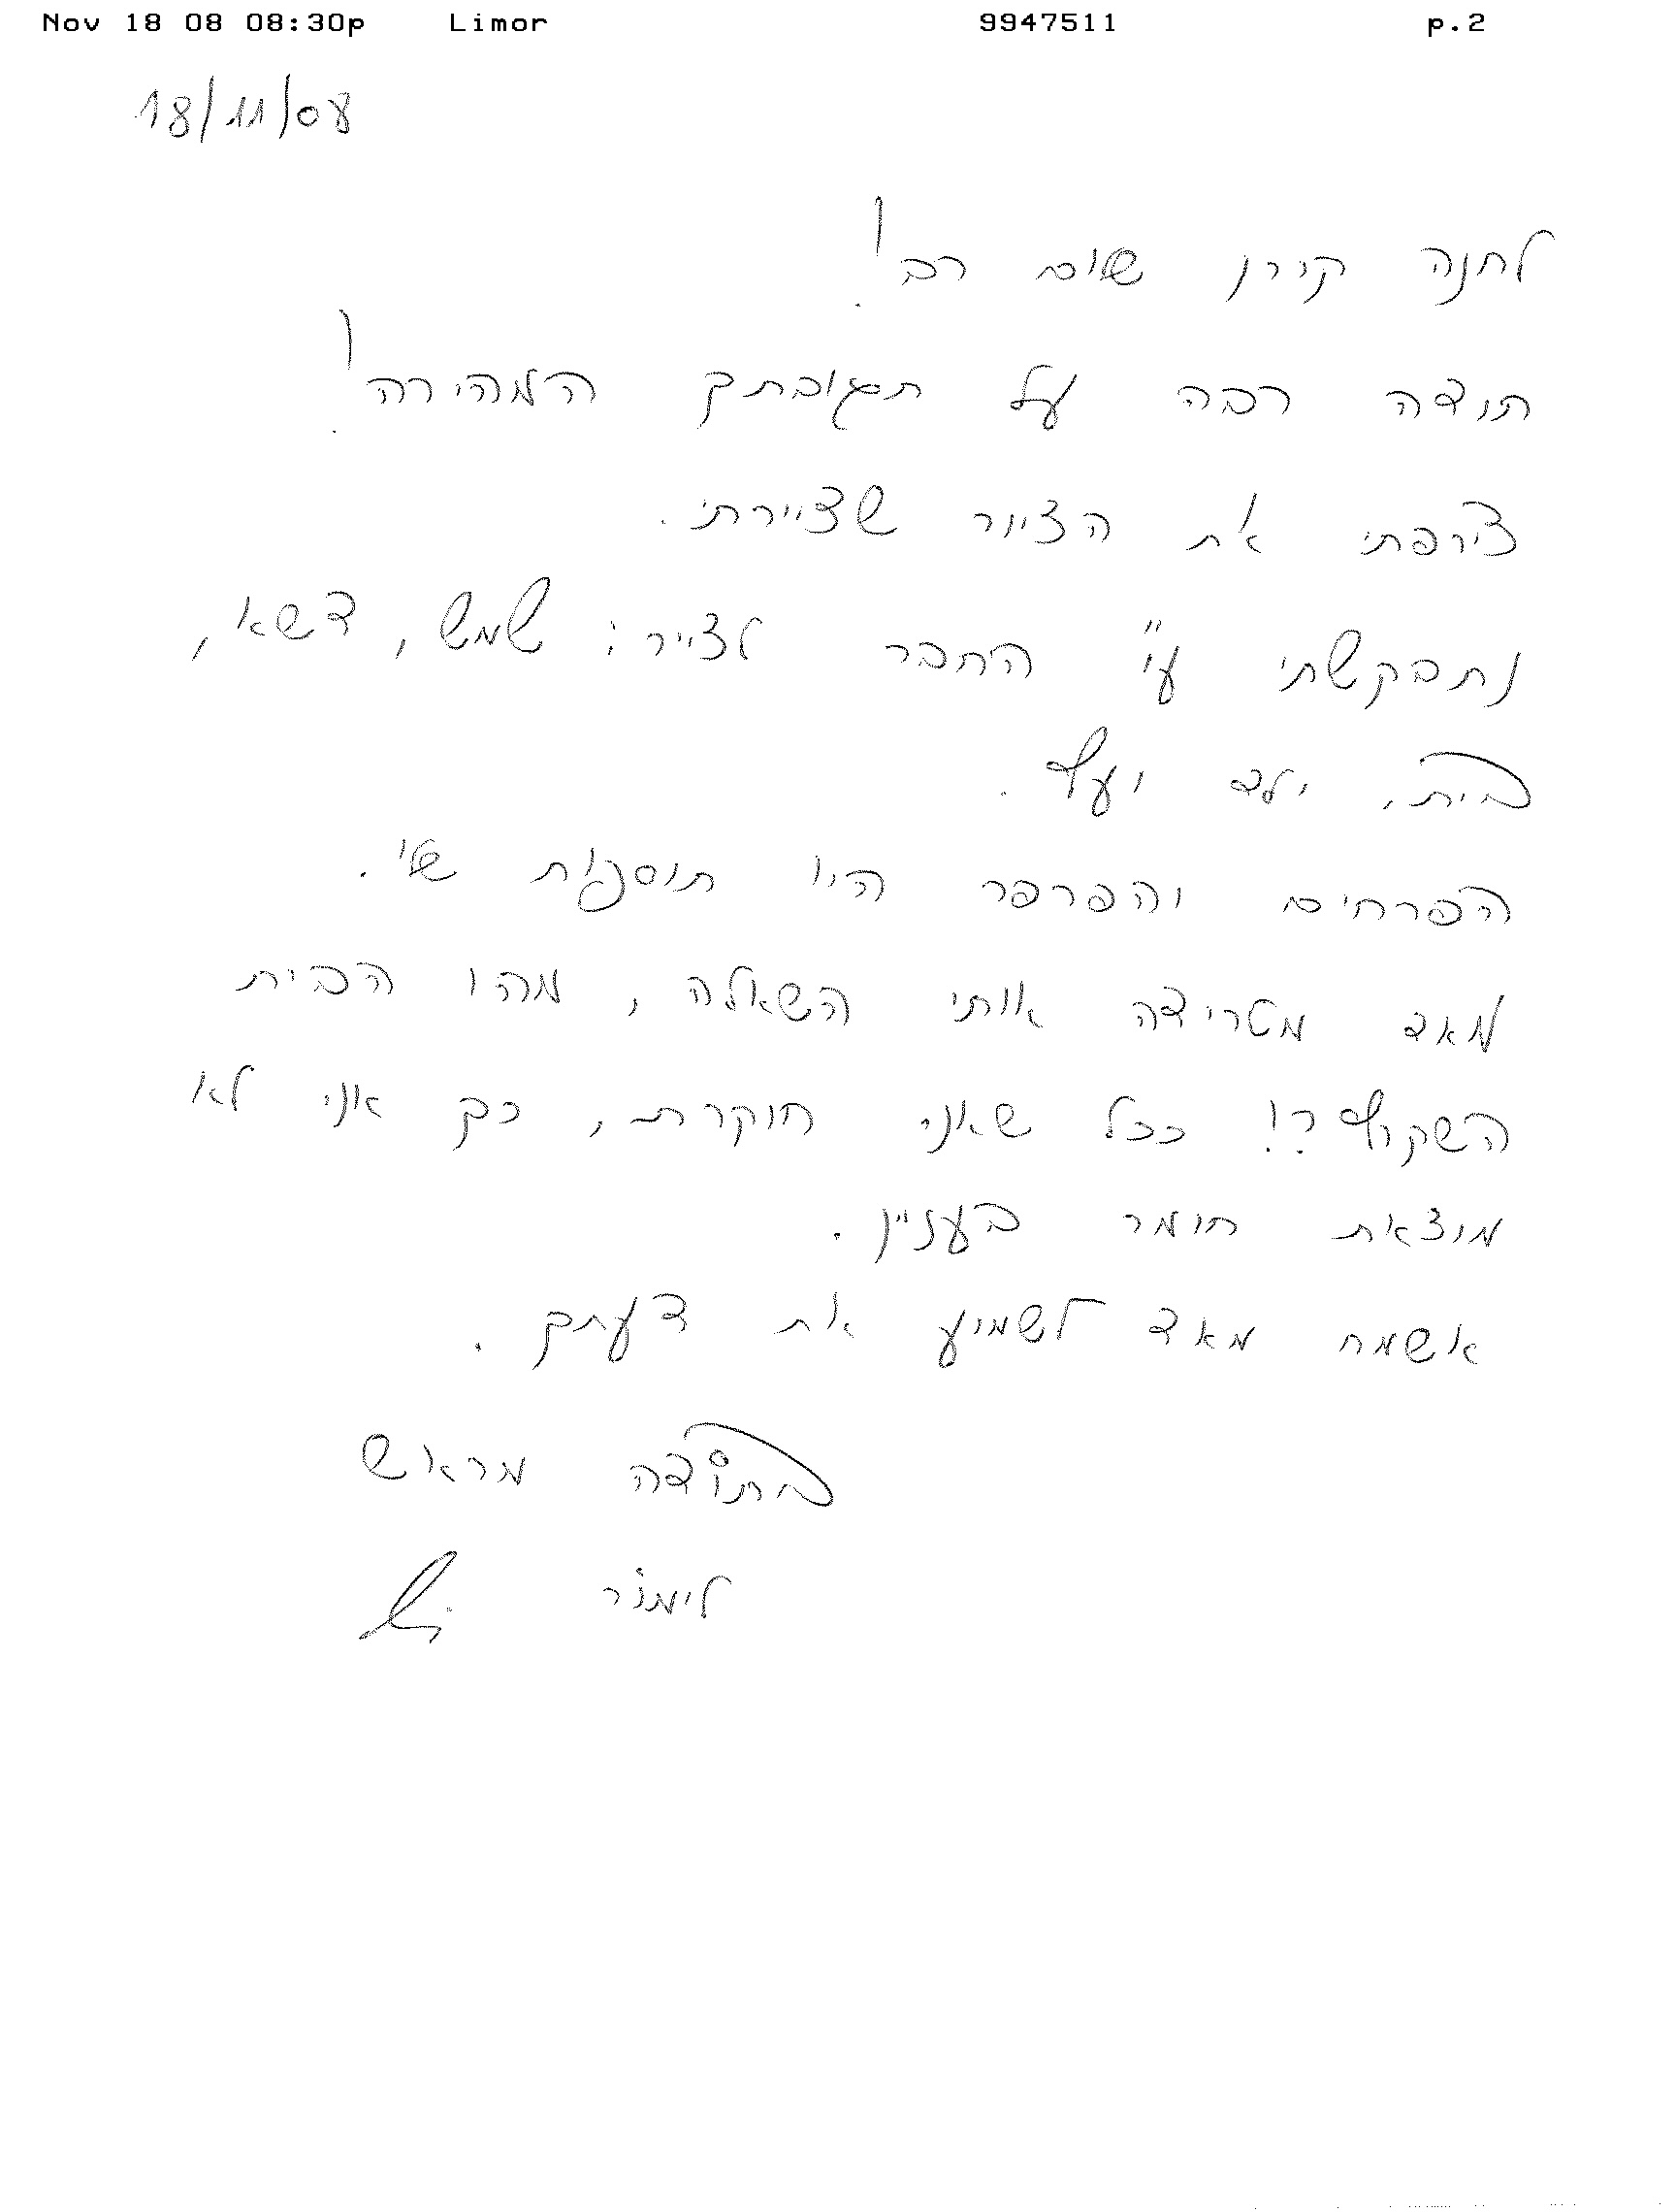 Nov 18 08 08:30p Limor 9947511 p.2
18/11/08
לחנה קורן שלום רב!
תודה רבה על תגובתך המהירה!
צירפתי את הציור שציירתי.
נתבקשתי ע"י החבר לצייר: שמש, דשא,
בית, ילד ועץ.
הפרחים והפרפר היו תוספות שלי.
מאד מטרידה אותי השאלה, מהו הבית
השקוף?! ככל שאני חוקרת, כך אני לא
מוצאת חומר בעניין.
אשמח מאד לשמוע את דעתך.
בתודה מראש
לימור